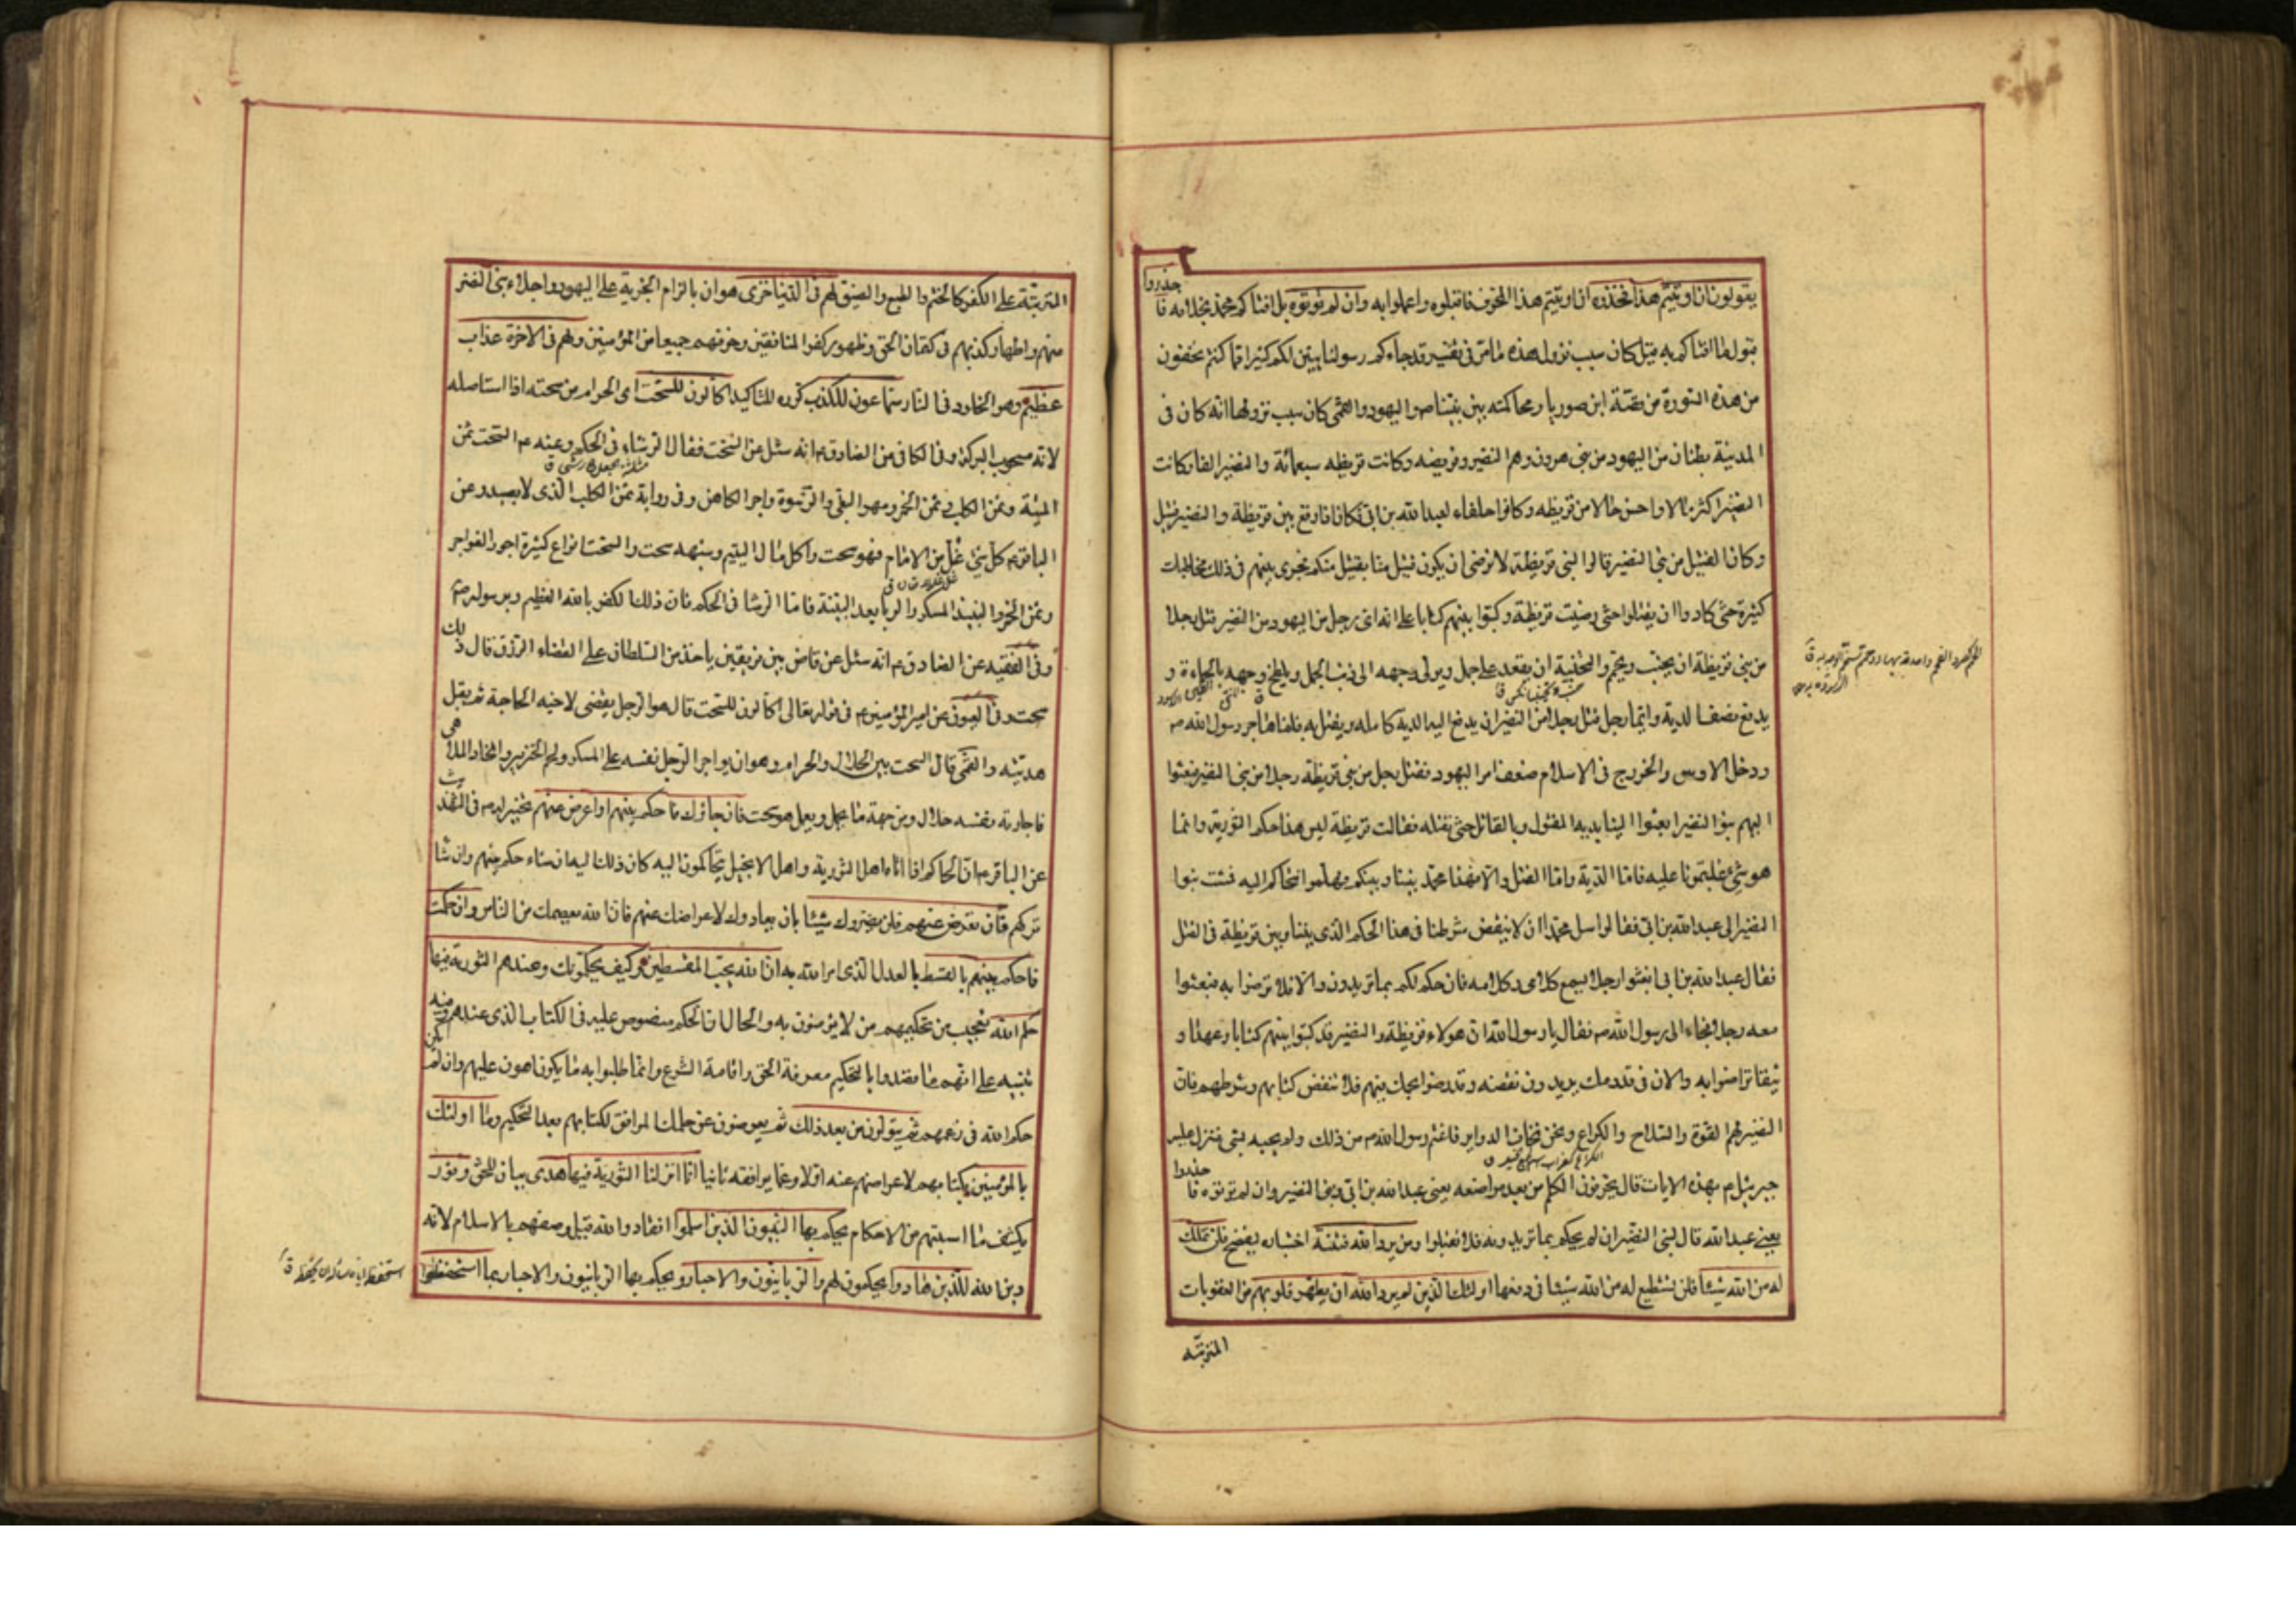 يقولون ان اوتيتم هذا فخذوه ان اوتيتم هذا المحرف فاقبلوه واعملوا به وان لم تؤتوه بل افتاكم محمد بخلافه فاحذروا
قبول ما افتاكم به قيل كان سبب نزول هذه ما مر في تفسير قد جاءكم رسولنا يبين لكم كثيرا مما كنتم تخفون
من هذه السورة من قصة ابن صوريا ومحاكمته بين نبينا ص واليهود والقمي كان سبب نزولها انه كان في
المدينة بطنان من اليهود من بني هرون وهم النضير وقريضه وكانت قريظه سبعمائة والنضير الفا وكانت
النضير اكثر مالا واحسن حالا من قريظه وكانوا حلفاء لعبد الله بن ابي فكان اذا وقع بين قريظة والنضير قتيل
وكان القتيل من بني النضير قالوا لبني قريظة لا نرضى ان يكون قتيل منا بقتيل منكم فجرى بينهم في ذلك مخاطبات
كثيرة حتى كادوا ان يقتتلوا حتى رضيت قريظة وكتبوا بينهم كتابا على انه اي رجل من اليهود من النضير قتل رجلا
من بني قريظة ان يجنب ويحمم والتجنبة ان يقعد على جمل ويولى وجهه الى ذنب الجمل ويلطخ وجهه بالحماءة و
يدفع نصف الدية وايما رجل قتل رجلا من النضير ان يدفع اليه الدية كامله ويقتل به فلما هاجر رسول الله ص
ودخل الاوس والخزرج في الاسلام ضعف امر اليهود فقتل رجل من بني قريظة رجلا من بني النضير فبعثوا
اليهم بنو النضير ابعثوا الينا بدية المقتول وبالقاتل حتى نقتله فقالت قريظة ليس هذا حكم التورية وانما
هو شئ غلبتمونا عليه فاما الدية واما القتل والا فهذا محمد بيننا وبينكم فهلموا نتحاكم اليه فمشت بنوا
النضير الى عبد الله بن ابي فقالوا سل محمدا ان لا ينقض شرطنا في هذا الحكم الذي بيننا وبين قريظة في القتل
فقال عبد الله بن ابي ابعثوا رجلا يسمع كلامى وكلامه فان حكم لكم بما تريدون والا فلا ترضوا به فبعثوا
معه رجلا فجاء الى رسول الله ص فقال يا رسول الله ان هولاء قريظة والنضير قد كتبوا بينهم كتابا وعهدا و
ثيقا تراضوا به والان في قدومك يريدون نقضه وقد رضوا بحكمك بينهم فلا تنقض كتابهم وشرطهم فان
النضير لهم القوة والسلاح والكراع ونحن نخاف الدواير فاغتم رسول الله ص من ذلك ولم يجبه بشئ فنزل عليه
جبرئيل ع بهذه الايات قال يحرفون الكلم من بعد مواضعه يعني عبد الله بن ابي وبني النضير وان لم تؤتوه فاحذروا
يعني عبد الله قال لبني النضير ان لم يحكم بما تريدونه فلا تقبلوا ومن يرد الله فتنته اختباره يفضح فلن تملك
له من الله شيئا فلن تستطيع له من الله شيئا في دفعها اولئك الذين لم يرد الله ان يطهر قلوبهم من العقوبات
المترتبه
المترتبة على الكفر كالختم والطبع والضيق لهم في الدنيا خزى هوان بالزام الجزية على اليهود واجلاء بني النضير
منهم واظهار كذبهم في كتمان الحق وظهور كفر المنافقين وخوفهم جميعا من المؤمنين ولهم في الاخرة عذاب
عظيم وهو الخلود في النار سماعون للكذب كرره للتاكيد اكالون للسحت اي الحرام من سحته اذا استاصله
لانه مسحوب البركة وفي الكافي عن الصادق ع انه سئل عن السحت فقال الرشاء في الحكم وعنه ع السحت ثمن
الميتة وثمن الكلب وثمن الخمر ومهر البغي والرشوة واجر الكاهن وفي رواية ثمن الكلب الذي لا يصيد وعن
الباقر ع كل شئ غل من الامام فهو سحت واكل مال اليتيم وشبهه سحت والسحت انواع كثيرة اجور الفواجر
وثمن الخمر والنبيذ المسكر والربا بعد البينة فاما الرشا في الحكم فان ذلك الكفر بالله العظيم وبرسوله ص
وفي الفقيه عن الصادق ع انه سئل عن قاض بين فريقين ياخذ من السلطان على القضاء الرزق قال ذلك
سحت وفي العيون عن امير المؤمنين ع في قوله تعالى اكالون للسحت قال هو الرجل يقضى لاخيه الحاجة ثم يقبل
هديته والقمي قال السحت بين الحلال والحرام وهو ان يواجر الرجل نفسه على المسكر ولحم الخنزير واتخاذ الملاهي
فاجارته نفسه حلال ومن جهة ما يحمل ويعمل هو سحت فان جاؤك فاحكم بينهم او اعرض عنهم تخيير له ص في التهذيب
عن الباقر ع ان الحاكم اذا اتاه اهل التورية واهل الانجيل يتحاكمون اليه كان ذلك اليه ان شاء حكم بينهم وان شا
تركهم وان تعرض عنهم فلن يضروك شيئا بان يعادوك لاعراضك عنهم فان الله يعصمك من الناس وان حكمت
فاحكم بينهم بالقسط بالعدل الذي امر الله به ان الله يحب المقسطين وكيف يحكمونك وعندهم التورية فيها
حكم الله تعجيب من تحكيمهم من لا يؤمنون به والحال ان الحكم منصوص عليه في الكتاب الذي عندهم وفيه
تنبيه على انهم ما قصدوا بالتحكيم معرفة الحق واقامة الشرع وانما طلبوا به ما يكون اهون عليهم وان لم يكن
حكم الله في زعمهم ثم يتولون من بعد ذلك ثم يعرضون عن حكمك الموافق لكتابهم بعد التحكيم وما اولئك
بالمؤمنين بكتابهم لاعراضهم عنه اولا وعما يوافقه ثانيا انا انزلنا التورية فيها هدى بيان للحق ونور
يكشف ما استبهم من الاحكام يحكم بها النبيون الذين اسلموا انقادوا لله قيل وصفهم بالاسلام لانه
دين الله للذين هادوا يحكمون لهم والربانيون والاحبار ويحكم بها الربانيون والاحبار بما استحفظوا